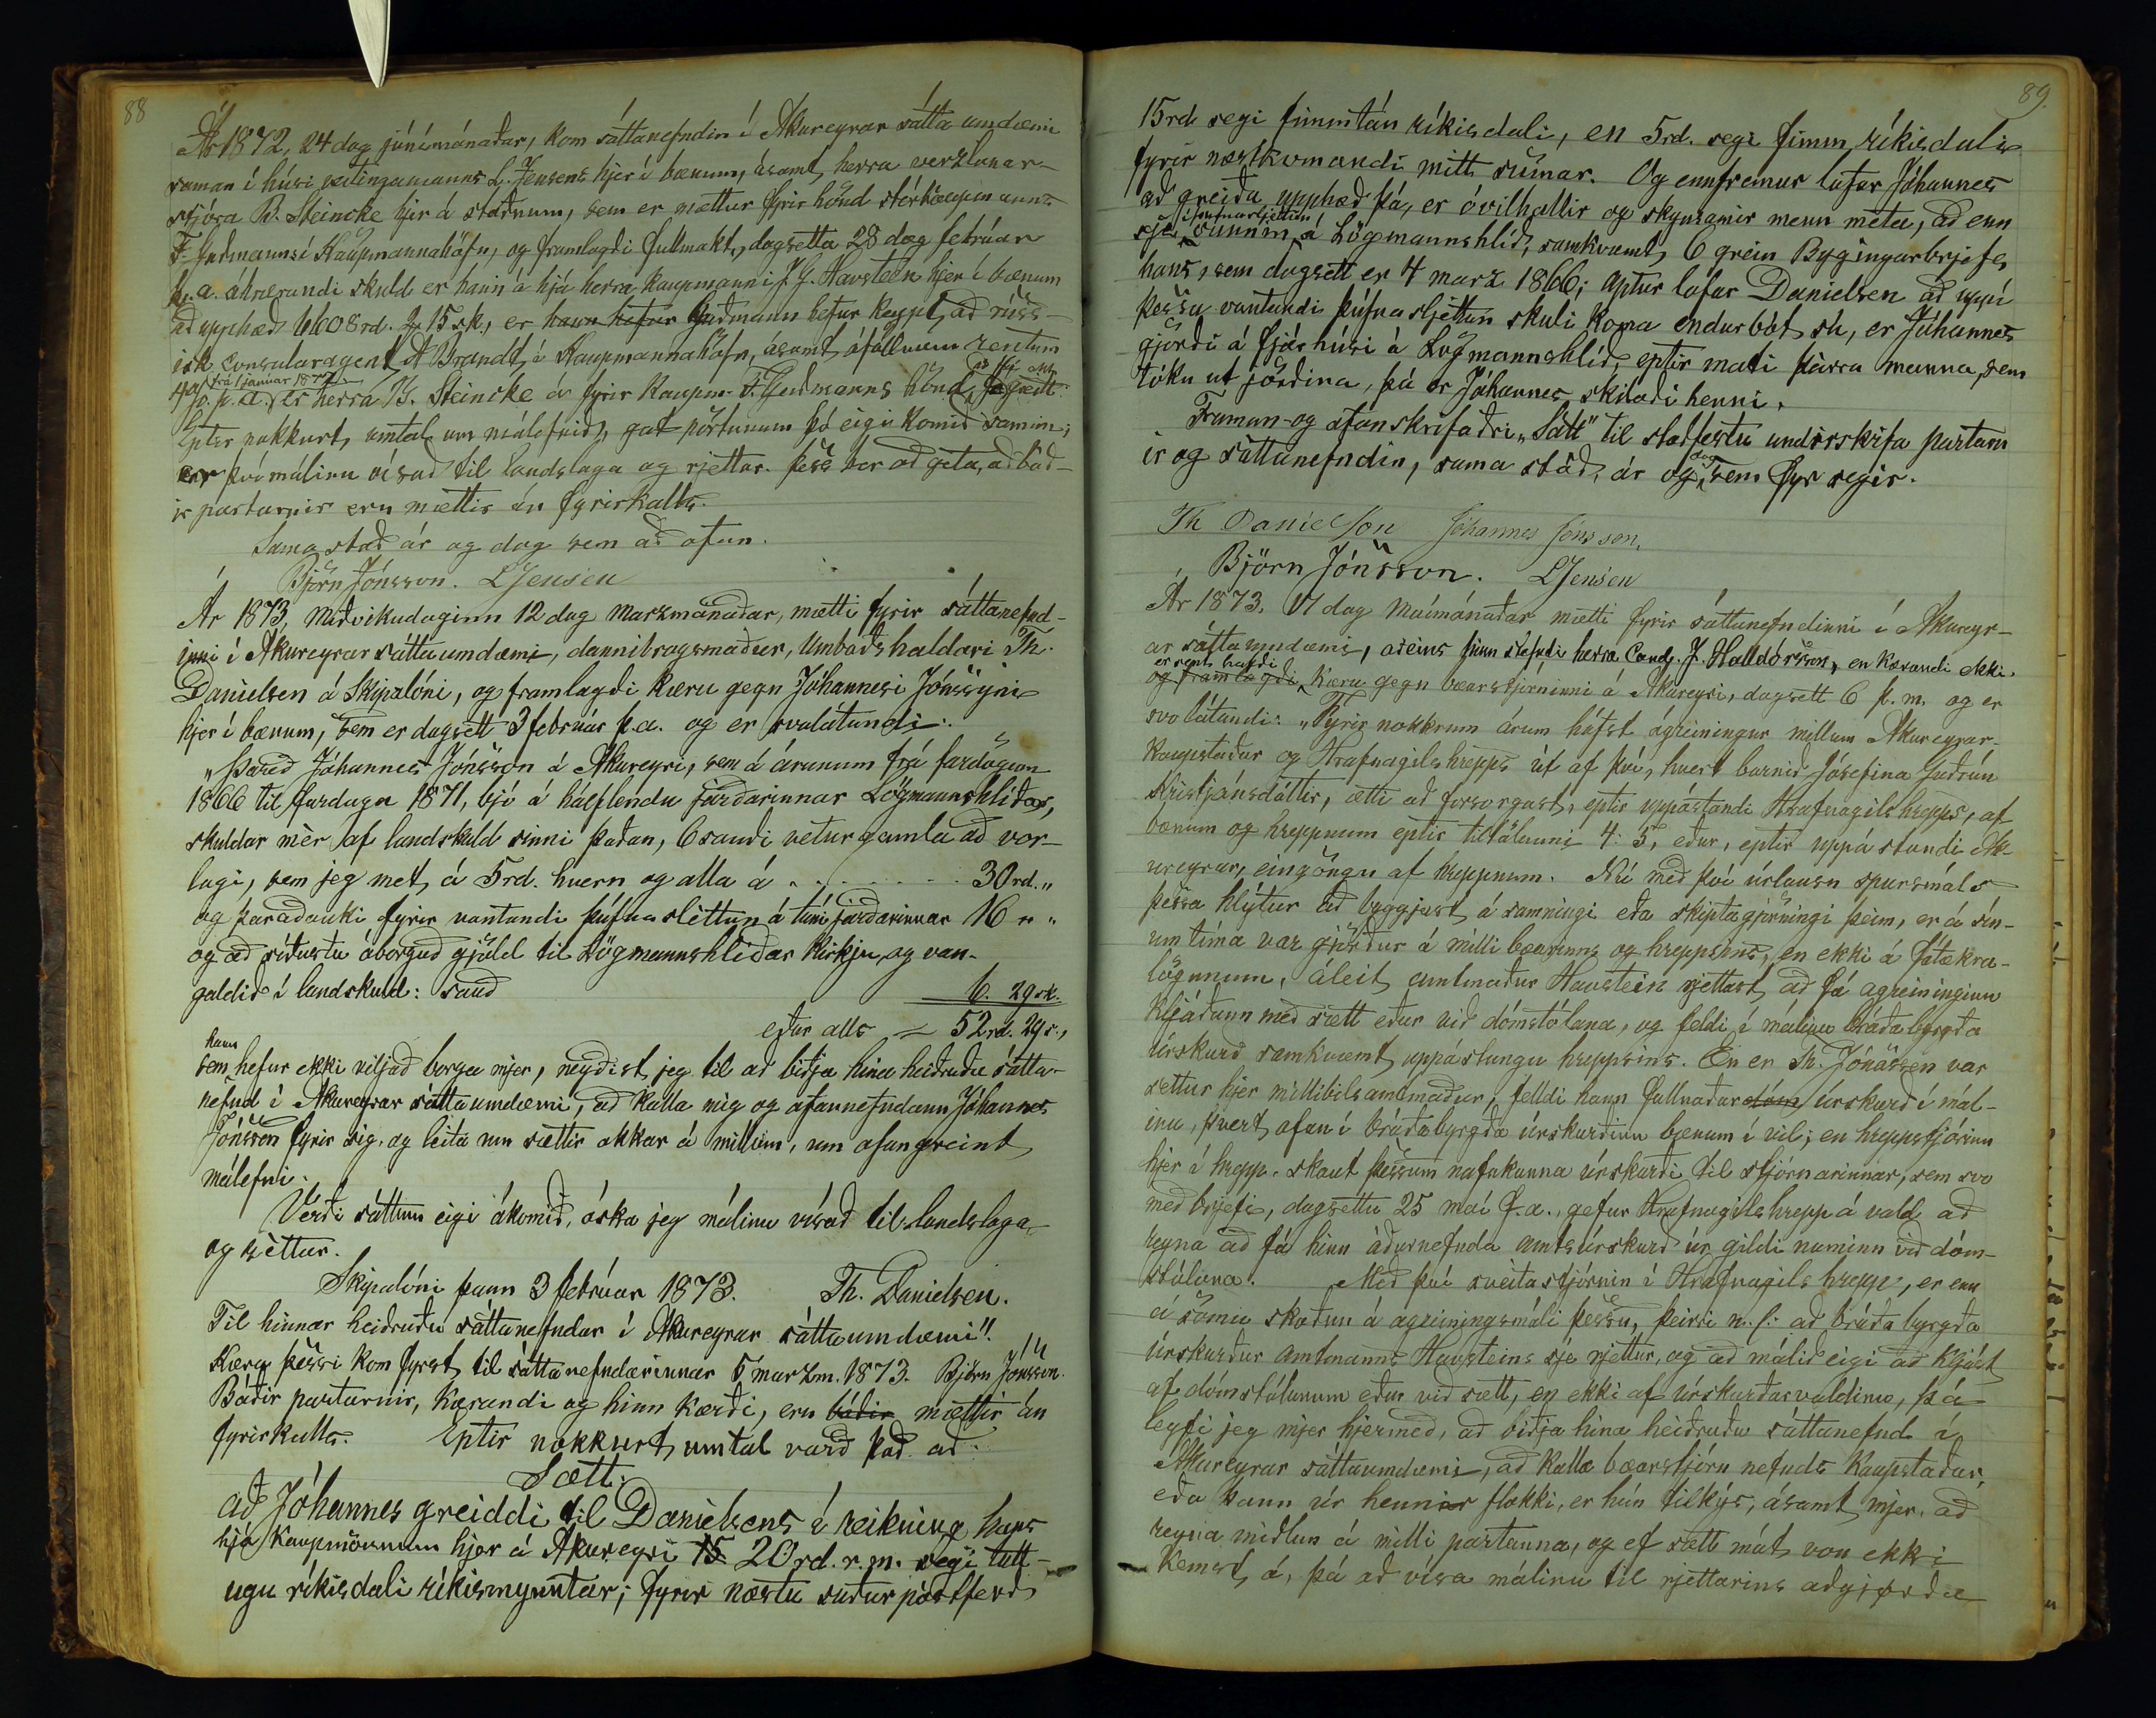 88
Ár 1872, 24 dag júnímánaðar, kom sáttanefndin í Akureyrar sátta umdæmi
saman í húsi veitingamanns L. Jensens hjer í bænum, ásamt herra verzlunar-
stjóra B. Steincke hjer á staðnum, sem er mættur fyrir hönd stórkaupmanns
F. Gudmanns í Kaupmannahöfn, og framlagði fullmakt, dagsetta 28 dag febrúar
þ. a. áhrærandi skuld er hann á hjá herra kaupmanni J. G. Havsteen hjer í bænum
að upphæð 6608 rd. 15 sk., er hann hefur Gudmann hefur keypt að rúss-
isk Consularagent A Brandt í Kaupmannahöfn, ásamt áföllnum rentum
4% p. a. frá 1 janúar er herra B. Steincke á fyrir Kaupm. F. Gudmanns hönd
Eptir nokkurt umtal um málefnið, gat pörtunum þó eigi komið saman;
er því málinu vísað til landslaga og rjettar. þess ber að geta, að báð-
ir partarnir eru mættir án fyrirkalls.
Sama stað ár og dag sem að ofan.
Björn Jónsson. LJensen
Ár 1873, Miðvikudaginn 12 dag Marzmánaðar, mætti fyrir sáttanefnd-
inni í Akureyrar sáttaumdæmi, dannibrogsmaður, Umboðshaldari Th.
Danielsen á Skipalóni, og framlagði kæru gegn Jóhannesi Jónssyni
hjer í bænum, sem er dagsett 3 febrúar þ. a. og er svolátandi:
„Þareð Jóhannes Jónsson á Akureyri, sem á árunum frá fardögum
1866 til fardaga 1871, bjó á hálflendu jarðarinnar Lögmannshlíðar,
skuldar mèr af landskuld sinni þaðan, 6 sauði veturgamla að vor-
lagi, sem jeg met á 5 rd. hvern og alla á . . . . . . 30 rd. „
og þaraðauki fyrir vantandi þúfnaslèttun á túni jarðarinnar 16 „ „
og að síðustu óborguð gjöld til Lögmannshlíðar kirkju, og van-
goldið í landskuld: sauð 6. 29 sk.
eður alls = 52 rd. 29 s.,
sem hann hefur ekki viljað borga mjer, neyðist jeg til að biðja hina heiðruðu sátta-
nefnd í Akureyrar sáttaumdæmi, að kalla mig og ofannefndann Jóhannes
Jónsson fyrir sig, og leita um sættir okkar á millum, um ofangreint
málefni.
Verði sáttum eigi ákomið, óska jeg málinu vísað til landslaga
og rèttar.
Skipalóni þann 3 febrúar 1873. Th. Danielsen.
Til hinnar heiðruðu sáttanefndar í Akureyrar sáttaumdæmi!!
Kæra þessi kom fyrst til sáttanefndarinnar 5 marzm. 1873. Björn Jónsson.
Báðir partarnir, kærandi og hinn kærði, eru báðir mættir án
fyrirkalls. Eptir nokkurt umtal varð það að
Sætt.
að Jóhannes greiddi til Danielsens í reikning hans
hjá kaupmönnum hjer á Akureyri 15 20 rd. r. m. segi tutt-
ugu ríkisdali ríkismyntar; fyrir næstu suður póstferð
89.
15 rd segi fimmtán ríkisdali, en 5 rd. segi fimm ríkisdali
fyrir næstkomandi mitt sumar. Og ennfremur lofar Jóhannes
að greiða upphæð þá, er óvilhallir og skynsamir menn meta, að enn
sje á Lögmannshlíð, samkvæmt 6 grein Byggingarbrjefs
hans, sem dagsett er 4 marz 1866; aptur lofar Danielsen að uppí
þessa vantandi þúfnasljettun skuli koma endurbót sú, er Jóhannes
gjörði á fjárhúsi á Lögmannshlíð, eptir mati þeirra manna, sem
tóku út jörðina, þá er Jóhannes skilaði henni.
Framan- og ofanskrifaðri „Sátt" til staðfestu undirskrifa partarn
ir og sáttanefndin, sama stað, ár og dag sem fyr segir.
Th Danielson Jóhannes Jónsson,
Björn Jónsson. LJensen
Ár 1873. 17 dag Maímánaðar mætti fyrir sáttanefndinni í Akureyr-
ar sáttaumdæmi, aðeins hinn stefndi herra Cand. J. Halldórsson, en kærandi ekki.
og framlagði er sent hafði kæru gegn bæarstjórninni á Akureyri, dagsett 6 þ. m. og er
svo látandi: „Fyrir nokkrum árum hófst ágreiningur millum Akureyrar-
kaupstaðar og Hrafnagilshrepps út af því, hvert barnið Jósefina Guðrún
Kristjánsdóttir, ætti að forsorgast, eptir uppástandi Hrafnagilshrepps, af
bænum og hreppnum eptir tiltölunni 4: 5, eður, eptir uppástandi Ak-
ureyrar, eingöngu af hreppnum. Nú með því úrlausn spursmáls
þessa hlýtur að byggjast á samningi eða skiptagjörningi þeim, er á sín-
um tíma var gjörður á milli bæarins og hreppsins, en ekki á fátækra-
lögunum, áleit amtmaður Havstein rjettast að fá ágreininginn
kljáðann með sætt eður við dómstólana, og feldi í málinu bráðabyrgða
úrskurð samkvæmt uppástungu hreppsins. En er Th. Jónassen var
settur hjer millibilsamtmaður, felldi hann fullnaðardóm úrskurð í mál-
inu, þvert ofan í bráðabyrgða úrskurðinn bænum í vil; en hreppstjórinn
hjer í hrepp. skaut þessum nafnkunna úrskurði til stjórnarinnar, sem svo
með brjefi, dagsettu 25 maí f. a., gefur Hrafnagilshrepp á vald að
reyna að fá hinn áðurnefnda amtsúrskurð úr gildi numinn við dóm-
stólana. Með því sveitastjórnin í Hrafnagilshrepp, er enn
á sömu skoðun á ágreiningsmáli þessu, þeirri n. l: að bráðabyrgða
úrskurður amtmanns Havsteins sje rjettur, og að málið eigi að kljást
af dómstólunum eður við sætt, en ekki af úrskurðarvaldinu, þá
leyfi jeg mjer hjermeð, að biðja hina heiðruðu sáttanefnd í
Akureyrar sáttaumdæmi, að kalla bæarstjórn nefnds kaupstaðar,
eða þann úr hennar flokki, er hún tilkýs, ásamt mjer, að
reyna miðlun á milli partanna, og ef sætt mót von ekki
kemst á, þá að vísa málinu til rjettarins aðgjörða